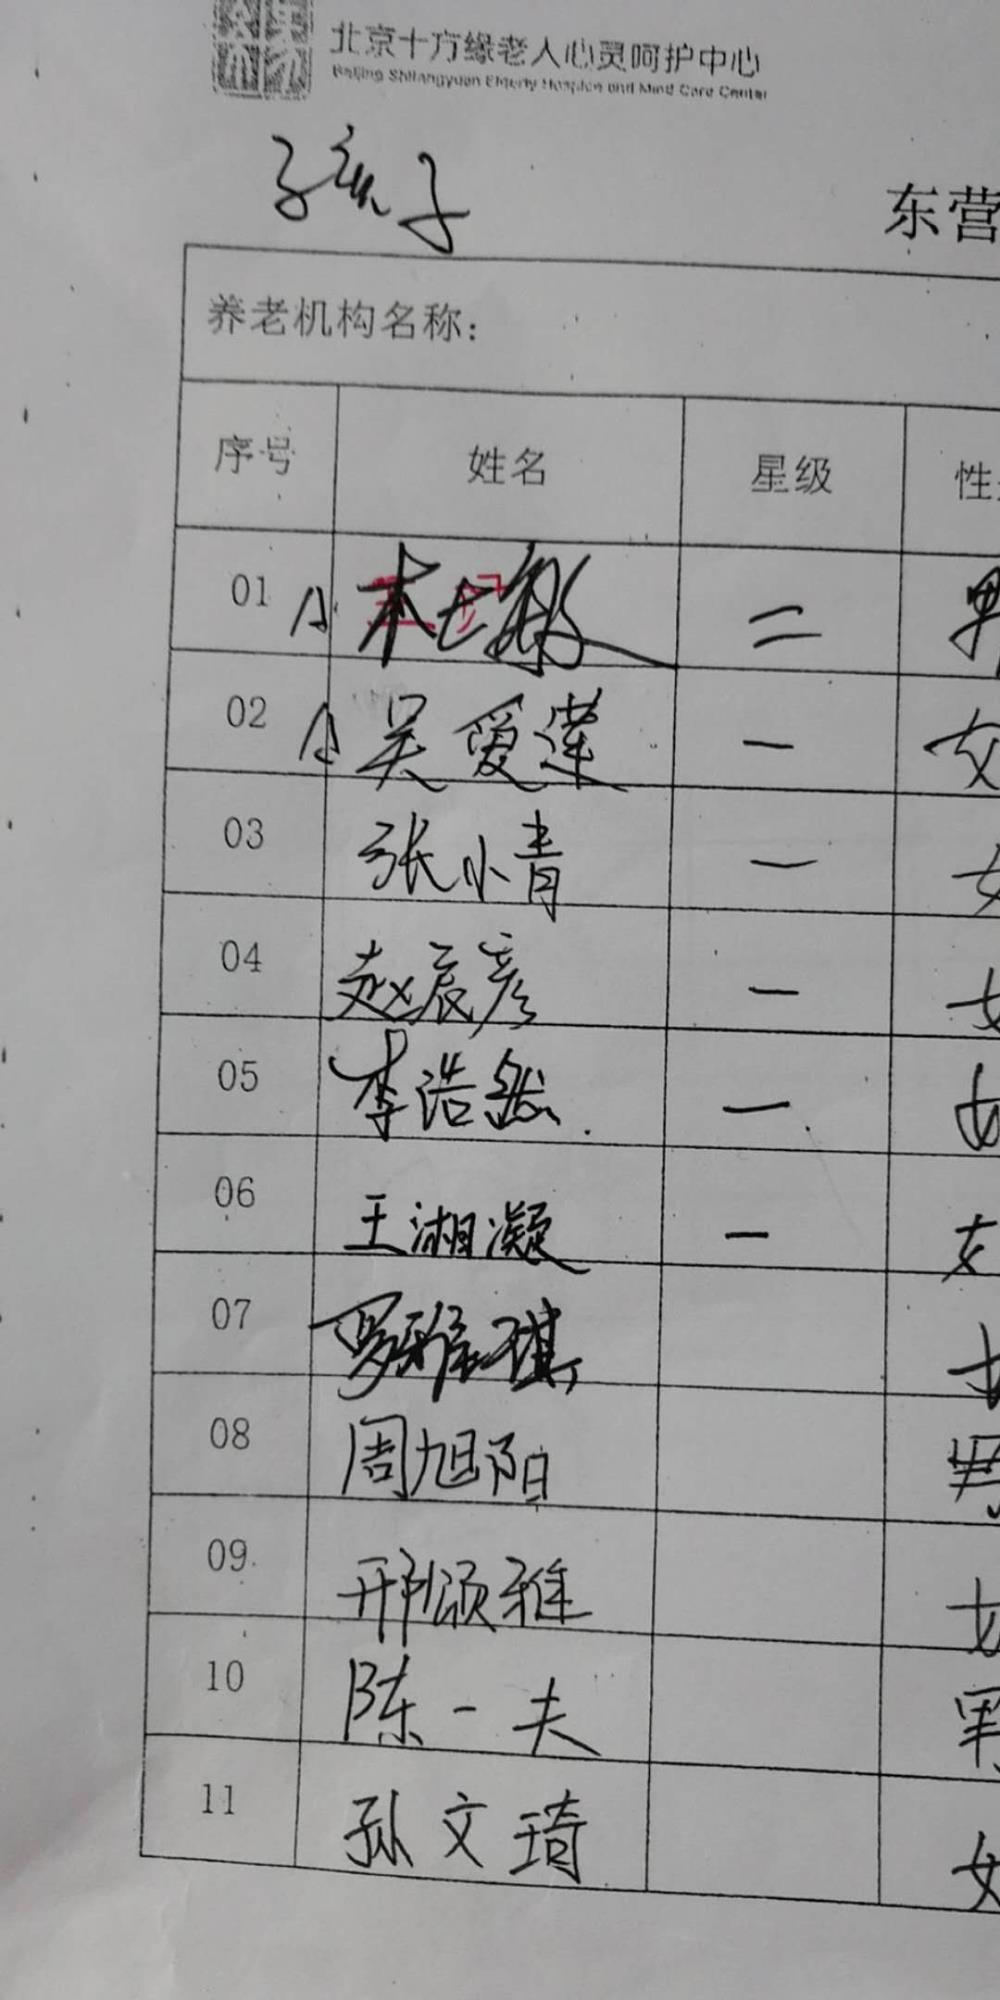 北京十方缘老人心灵呵护中心
Beijing Shifangyuan Elderly Hospice and Mind Care Center
孩子
东营
养老机构名称：
序号 姓名 星级 性
01 二 男
02 吴爱莲 一 女
03 张小青 一 女
04 赵辰彦 一 女
05 李浩然 一 女
06 王湘凝 一 女
07 罗雅琪 女
08 周旭阳 男
09 邢颂雅 女
10 陈一夫 男
11 孙文琦 女